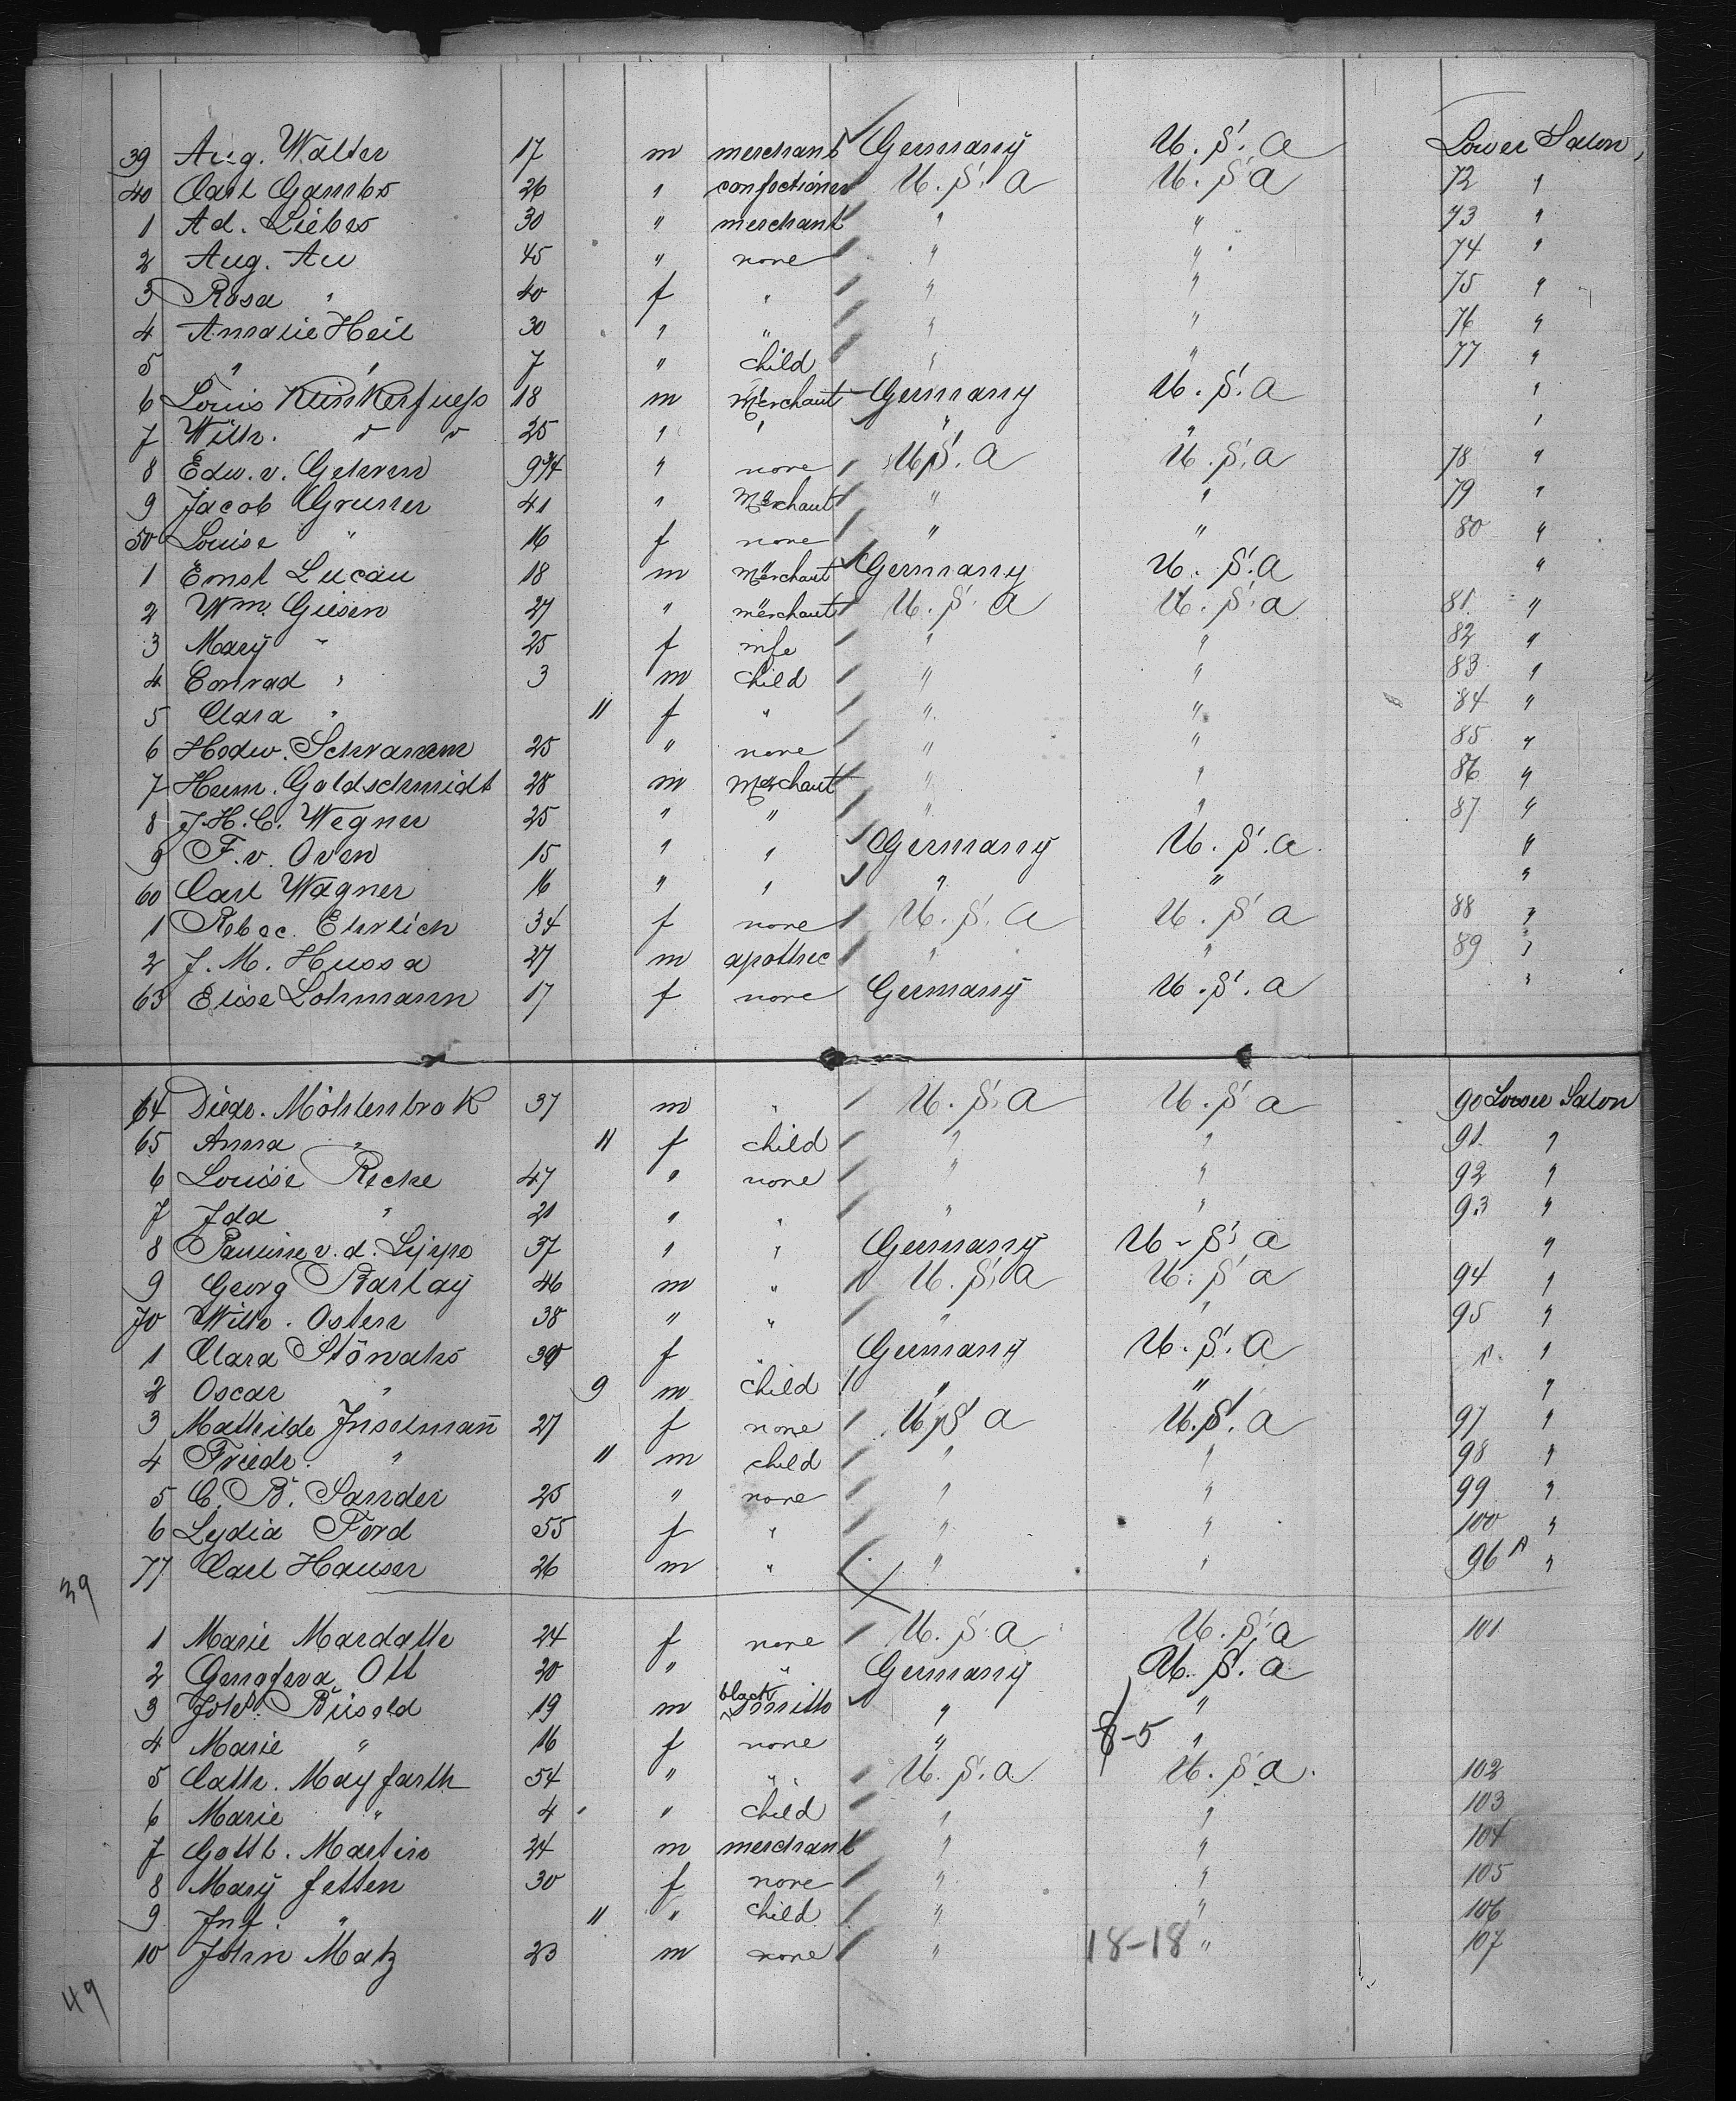 39 Aug. Walter 17 m merchant Germany U.S.A Lower Salon,
40 Carl Gambs 26 " confectioner U.S.A U.S.A 72 "
1 Ad. Liebes 30 " merchant " " 73 "
2 Aug. Au 45 " none " " 74 "
3 Rosa " 40 f " " " 75 "
4 Amalie Heil 30 " " " " 76 "
5 " " 7 " child " " 77 "
6 Louis Klinkerfuess 18 m Merchant Germany U.S.A "
7 Wilh. " " 25 " " " " "
8 Edw. v. Gehren 9 3/4 " none U.S.A U.S.A 78 "
9 Jacob Gruner 41 " Merchant " " 79 "
50 Louise " 16 f none " " 80 "
1 Ernst Lucau 18 m Merchant Germany U.S.A "
2 Wm. Giesen 27 " merchant U.S.A U.S.A 81 "
3 Mary " 25 f wife " " 82 "
4 Conrad " 3 m child " " 83 "
5 Clara " 11 f " " " 84 "
6 Hedw. Schramm 25 " none " " 85 "
7 Herm. Goldschmidt 28 m Merchant " " 86 "
8 J.H.C. Wegner 25 " " " " 87 "
9 F. v. Oven 15 " " Germany U.S.A. "
60 Carl Wagner 16 " " " " "
1 Rebec. Ehrlich 34 f none U.S.A U.S.A 88 "
2 J. M. Hussa 27 m apothec " " 89 "
63 Elise Lohmann 17 f none Germany U.S.A "
64 Diedr. Möhlenbrok 37 m " U.S.A U.S.A 90 Lower Salon
65 Anna " 11 f child " " 91 "
6 Louise Recke 47 " none " " 92 "
7 Ida " 21 " " " " 93 "
8 Pauline v. d. Lippe 37 " " Germany U.S.A "
9 Georg Barlay 46 m " U.S.A U.S.A 94 "
70 Wilh. Osten 38 " " " " 95 "
1 Clara 39 f " Germany U.S.A "
2 Oscar " 9 m child " " "
3 Mathilde Inselmann 27 f none U.S.A U.S.A 97 "
4 Friedr. " 11 m child " " 98 "
5 C. B. Sander 25 " none " " 99 "
6 Lydia Ford 55 f " " " 100 "
77 Carl Hauser 26 m " " " 96 A "
39
1 Marie Mardatte 24 f none U.S.A U.S.A 101
2 Genofeva Ott 20 " " Germany U.S.A
3 Joh. Büsold 19 m black smith " "
4 Marie " 16 f none " 8-5 "
5 Cath. Mayfarth 54 " " U.S.A U.S.A. 102
6 Marie " 4 " child " " 103
7 Gottl. Martin 24 m merchant " " 104
8 Mary Jetten 30 f none " " 105
9 Inf. " 11 " child " " 106
10 John Matz 23 m none " 18-18 " 107
49